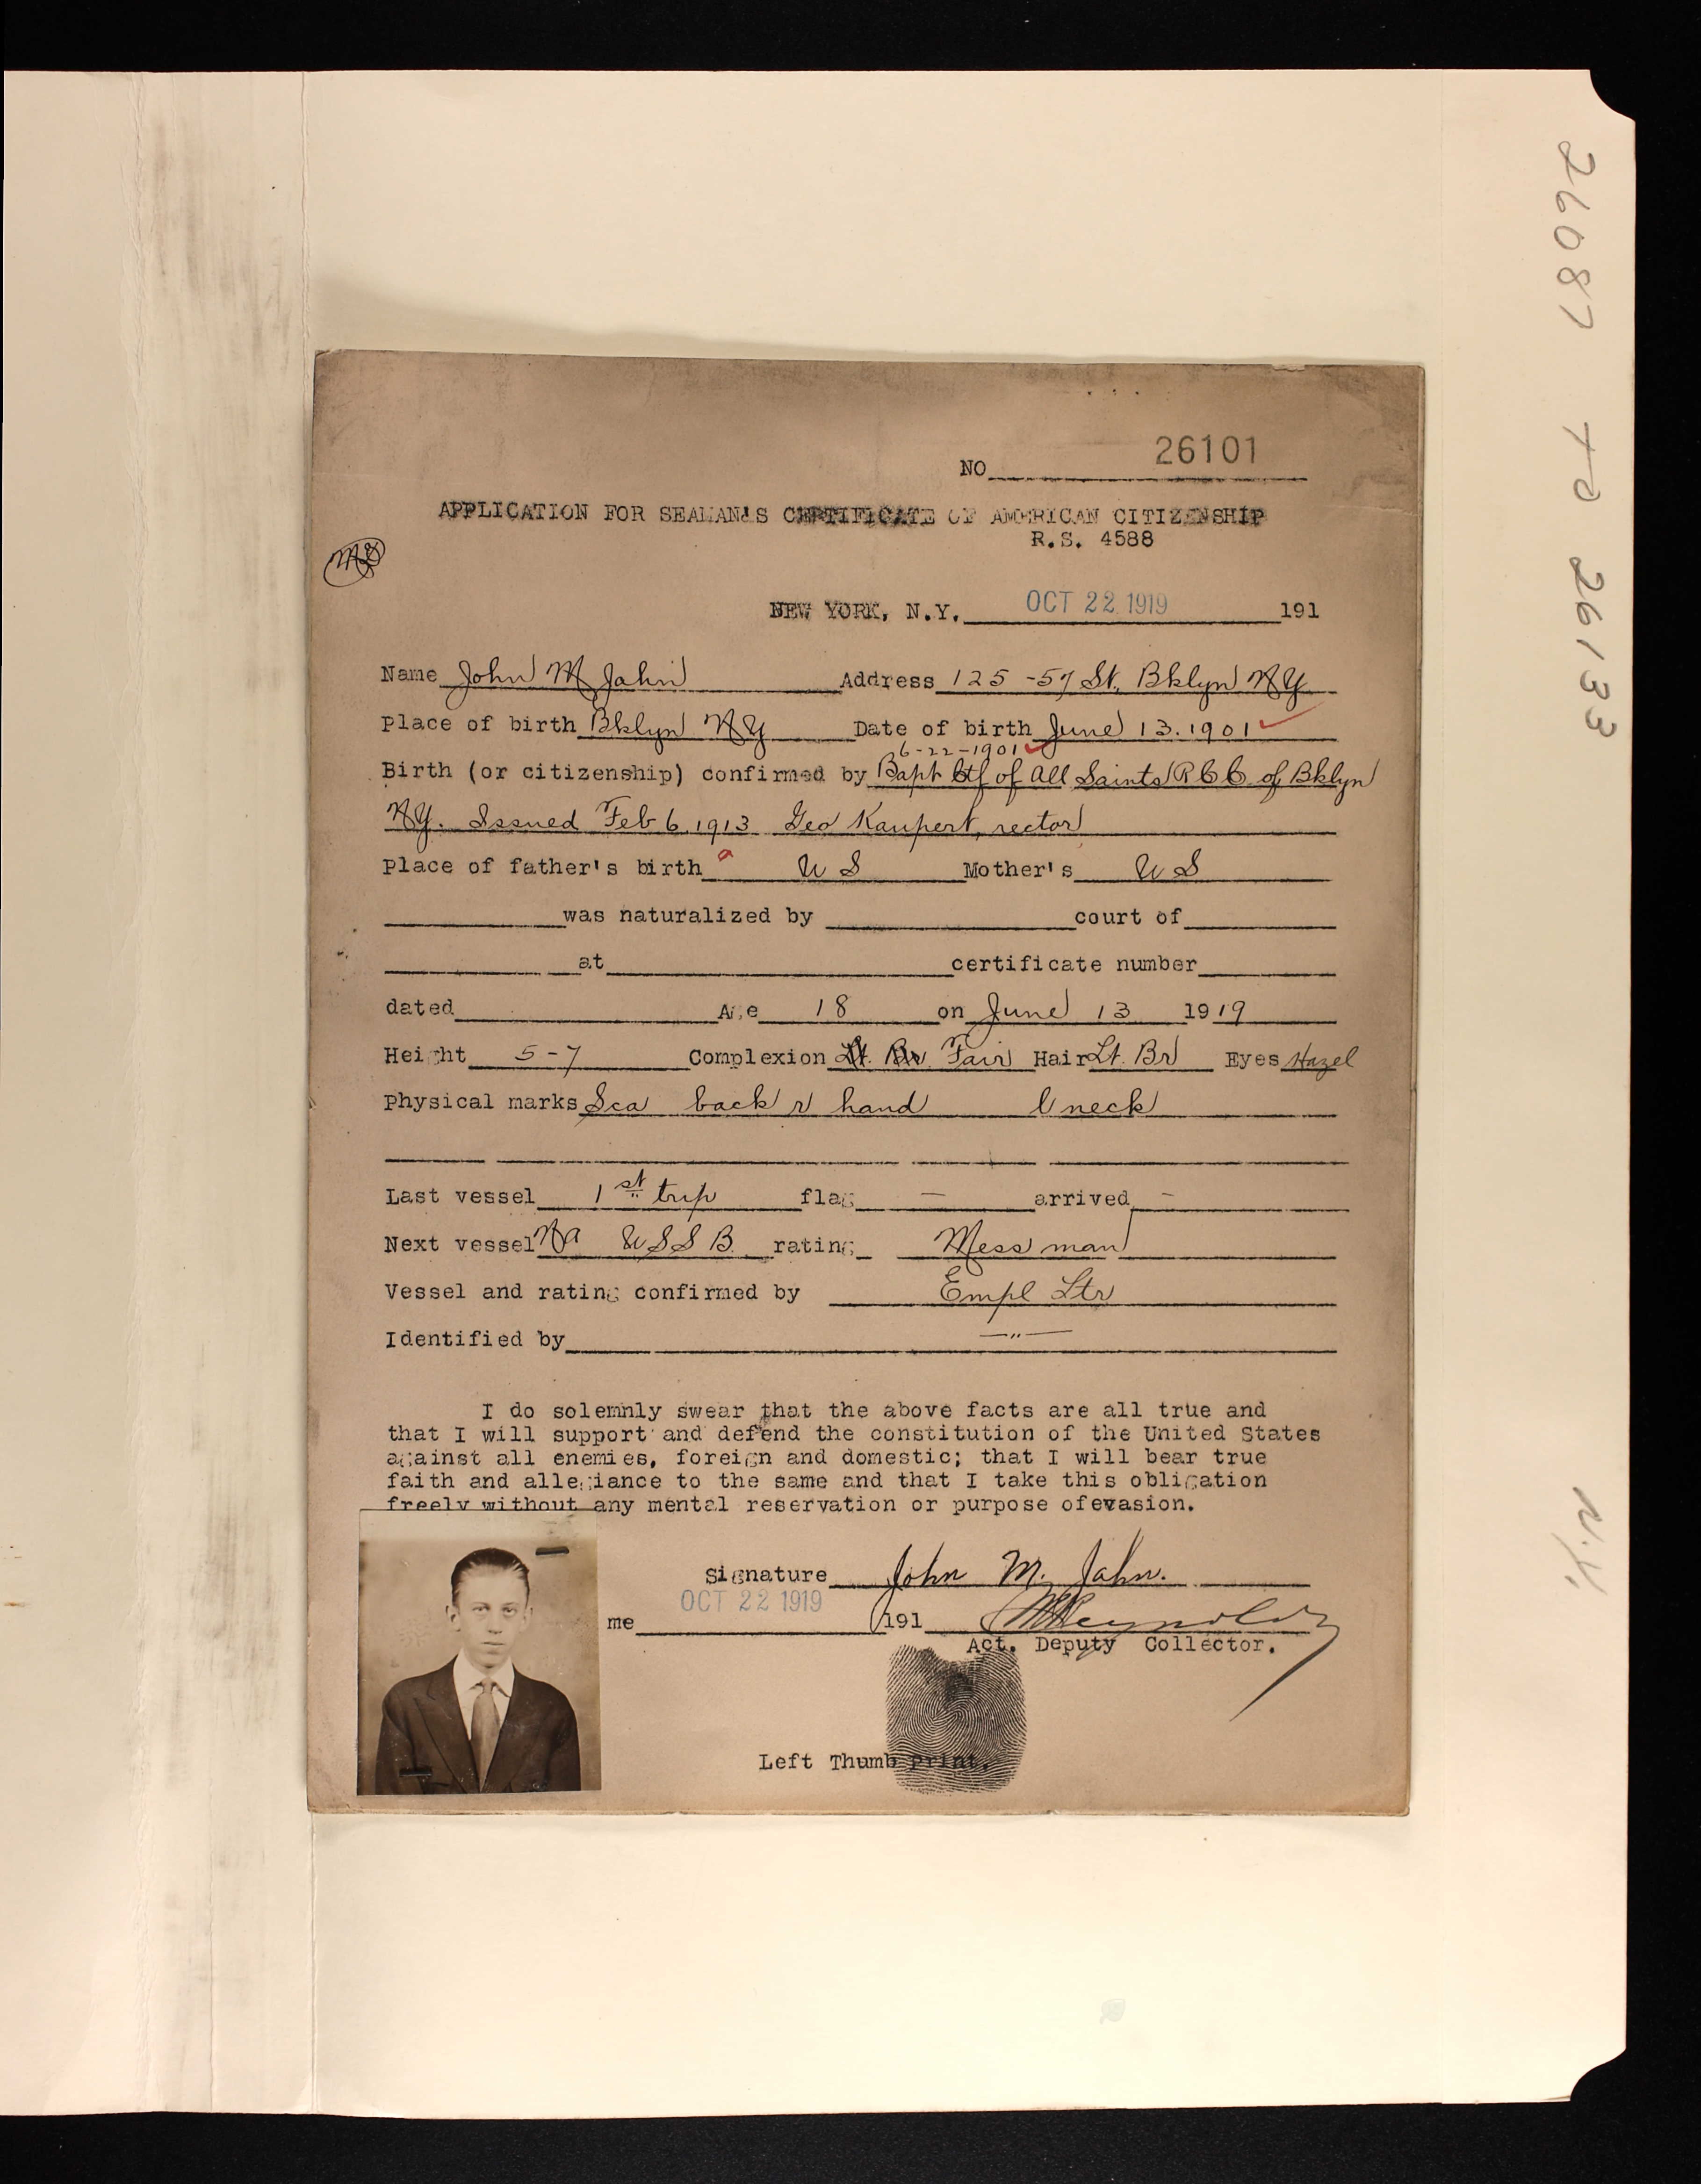 NO 26101
APPLICATION FOR SEAMAN'S CERTIFICATE OF AMERICAN CITIZENSHIP
R.S. 4588
NEW YORK, N.Y. OCT 22 1919 191
Name John M Jahn Address 125 - 57 St, Bklyn NY
Place of birth Bklyn NY Date of birth June 13. 1901
6-22-1901
Birth (or citizenship) confirmed by Bapt Ctf of All Saints R C C of Bklyn
NY. Issued Feb 6, 1913 Geo Kaupert, rector
Place of father's birth U S Mother's U S
was naturalized by court of
at certificate number
dated Age 18 on June 13 1919
Height 5-7 Complexion Lt. Br. Fair Hair Lt. Br Eyes Hazel
Physical marks Sca back r hand l neck
Last vessel 1st trip flag – arrived –
Next vessel Na USSB. rating Mess man
Vessel and rating confirmed by Empl Ltr
Identified by —"—
I do solemnly swear that the above facts are all true and
that I will support and defend the constitution of the United States
against all enemies, foreign and domestic; that I will bear true
faith and allegiance to the same and that I take this obligation
freely without any mental reservation or purpose ofevasion.
Signature John M. Jahn.
OCT 22 1919
me 191 Reynolds
Act. Deputy Collector.
Left Thumb Print.
26087 to 26133
N.Y.